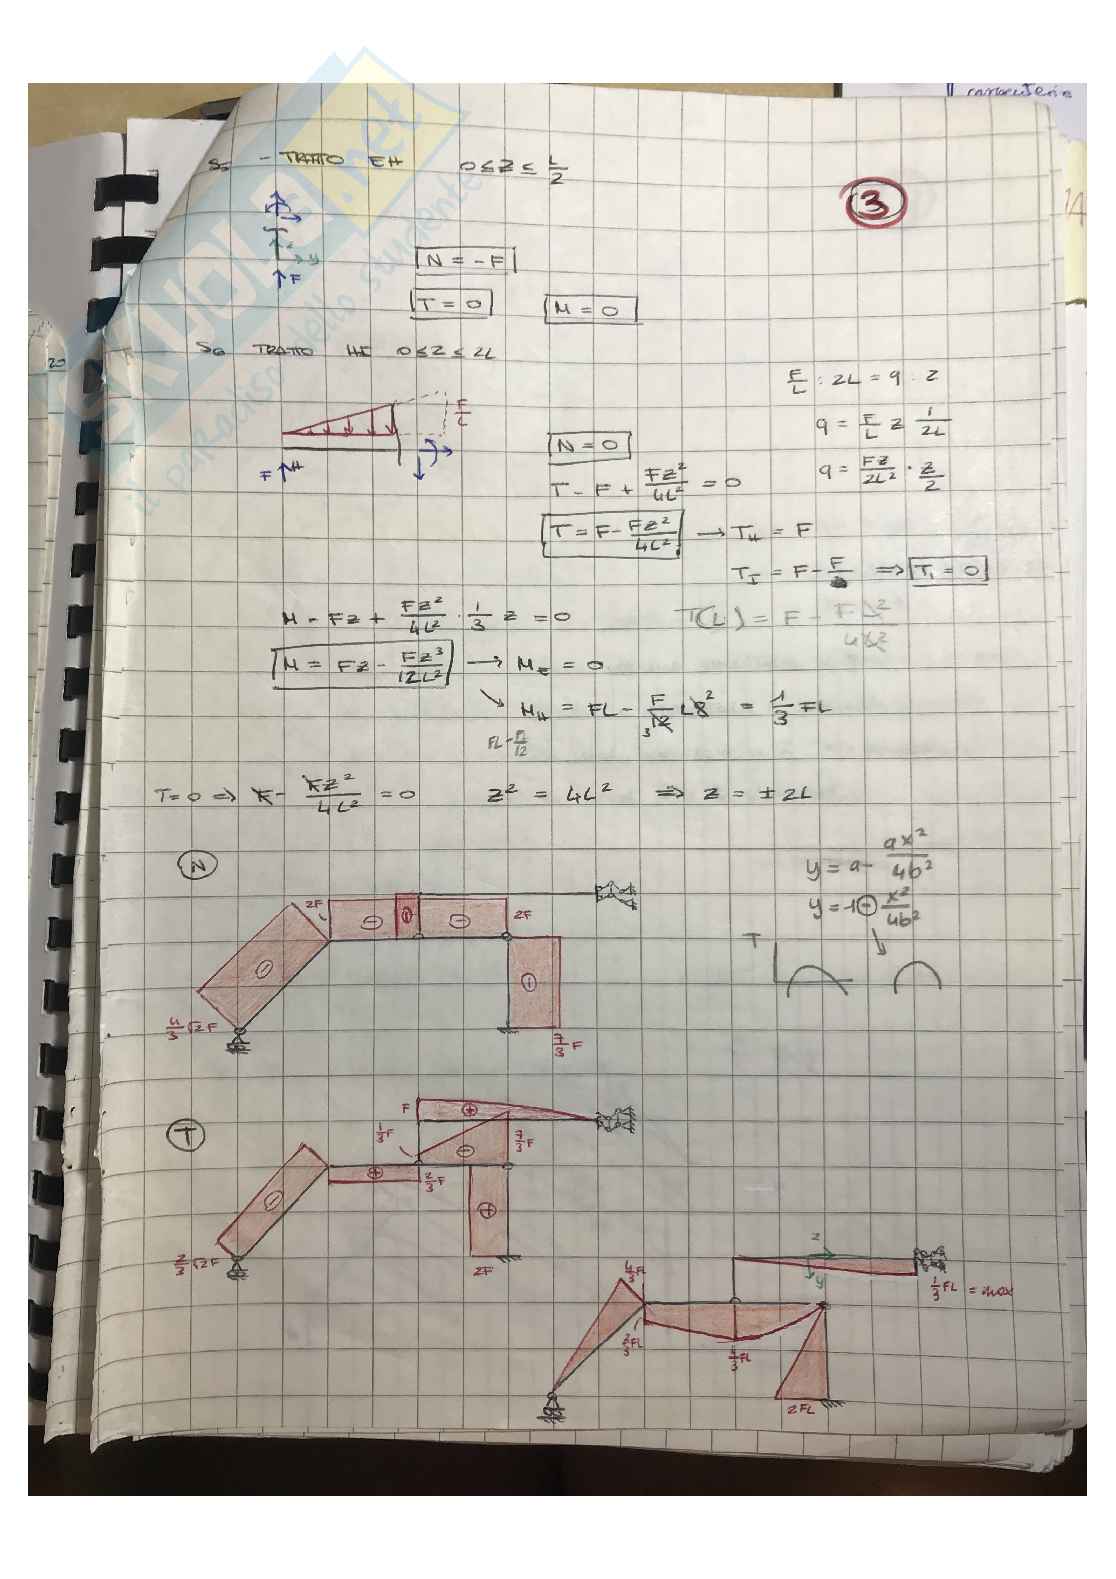 S5 - TRATTO EH 0 ≤ z ≤ L/2
3
y
F
N = -F
T = 0 M = 0
S6 TRATTO HI 0 ≤ z ≤ 2L
F/L : 2L = q : z
q = F/L z 1/2L
q = Fz/2L² · z/2
F/L
F H
N = 0
T - F + Fz²/4L² = 0
T = F - Fz²/4L² → T_H = F
T_I = F - F/ ⇒ T_I = 0
M - Fz + Fz²/4L² · 1/3 z = 0
T(L) = F - F L²/4L²
M = Fz - Fz³/12L² → M_E = 0
M_H = FL - F/12 L8² = 1/3 FL
3
FL - FL/12
T = 0 ⇒ F - Fz²/4L² = 0 z² = 4L² ⇒ z = ± 2L
y = a - ax²/4b²
y = 1 - x²/4b²
T
N
2F
-
-
2F
-
-
4/3 √2 F
7/3 F
T
F
+
1/3 F
7/3 F
-
+
2/3 F
-
+
2/3 √2 F
2F
z
y
4/3 FL
1/3 FL = max
2/3 FL
4/3 FL
2FL
20
SKUOLA.net
il paradiso dello studente